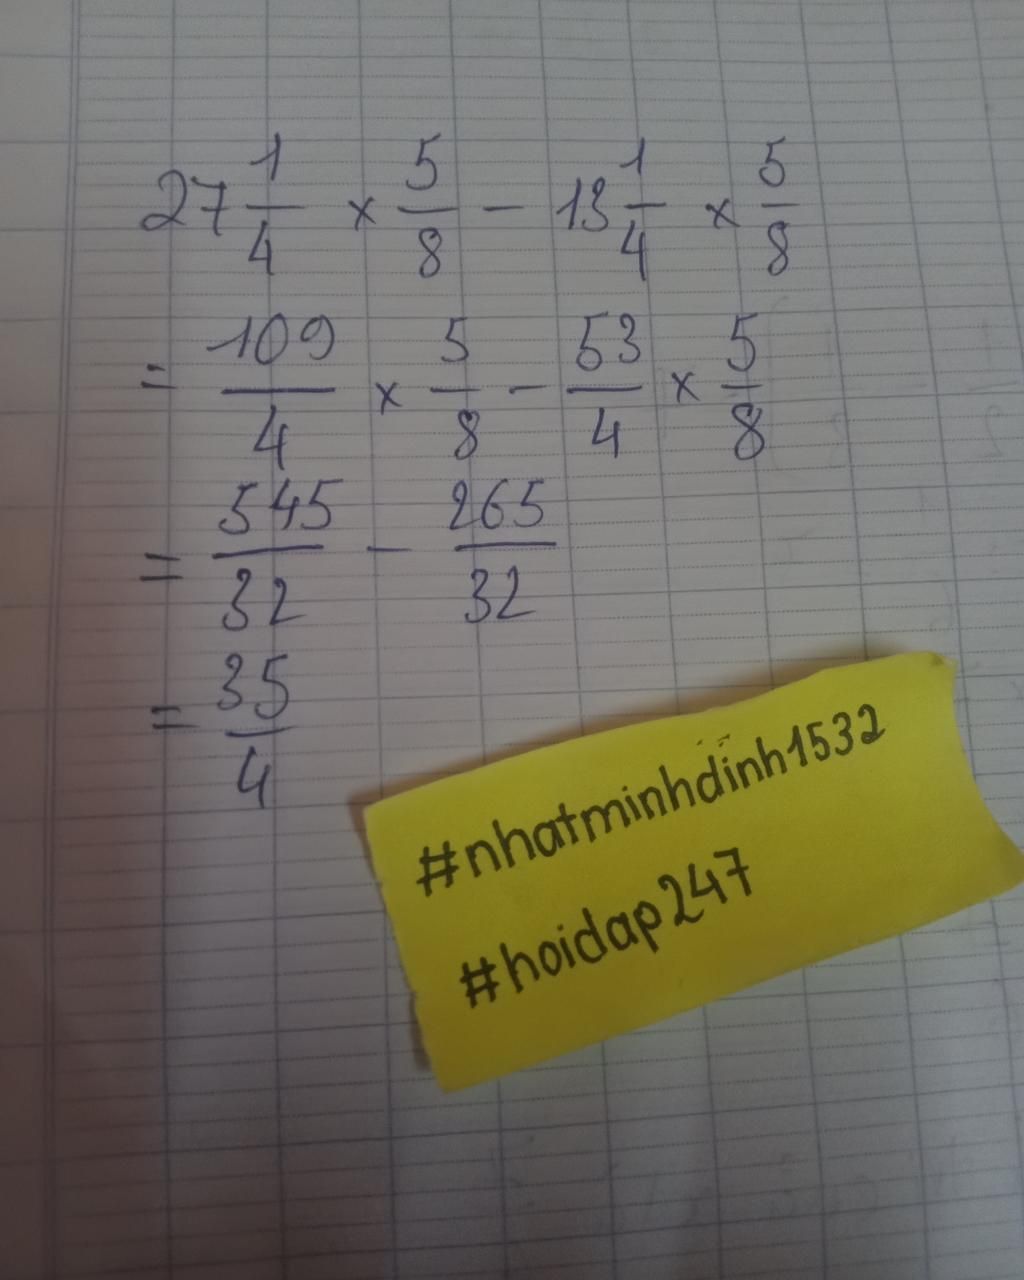 27 1/4 × 5/8 − 13 1/4 × 5/8
= 109/4 × 5/8 − 53/4 × 5/8
= 545/32 − 265/32
= 35/4
#nhatminhdinh1532
#hoidap247